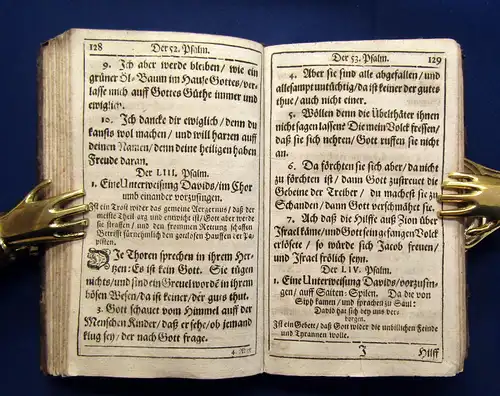 128
Der 52. Psalm.
9. Ich aber werde bleiben / wie ein
grüner Öl-Baum im Hause Gottes / ver-
lasse mich auff Gottes Güthe immer und
ewiglich.
10. Ich dancke dir ewiglich / denn du
kansts wol machen / und will harren auff
deinen Namen / denn deine heiligen haben
Freude daran.
Der LIII. Psalm.
1. Eine Unterweisung Davids / im Chor
umb einander vorzusingen.
Ist ein Trost wider das gemeine Aergernus / daß der
meiste Theil arg und entwicht ist / Gott aber werde
sie straffen / und den frommen Rettung schaffen
Betrifft fürnehmlich den gottlosen Hauffen der Pa-
pisten.
Die Thoren sprechen in ihrem Her-
tzen: Es ist kein Gott. Sie tügen
nichts / und sind ein Greuel worden in ihrem
bösen Wesen / da ist keiner der guts thut.
3. Gott schauet vom Himmel auff der
Menschen Kinder / daß er sehe / ob jemand
klug sey / der nach Gott frage.
4. Aber
Der 53. Psalm.
129
4. Aber sie sind alle abgefallen / und
allesampt untüchtig / da ist keiner der gutes
thue / auch nicht einer.
5. Wöllen denn die Übelthäter ihnen
nicht sagen lassen? Die mein Volck fressen /
daß sie sich nehren / Gott ruffen sie nicht
an.
6. Da förchten sie sich aber / da nicht
zu förchten ist / dann Gott zustreuet die
Gebeine der Treiber / du machest sie zu
Schanden / dann Gott verschmähet sie.
7. Ach daß die Hilffe auß Zion über
Israel käme / und Gott sein gefangen Volck
erlösete / so würde sich Jacob freuen /
und Israel frölich seyn.
Der LIV. Psalm.
1. Eine Unterweisung Davids / vorzusin-
gen / auff Saiten-Spilen. Da die von
Siph kamen / und sprachen zu Saul:
David hat sich bey uns ver-
borgen.
Ist ein Gebete / daß Gott wider die unbillichen Feinde
und Tyrannen wolle.
J
Hilff